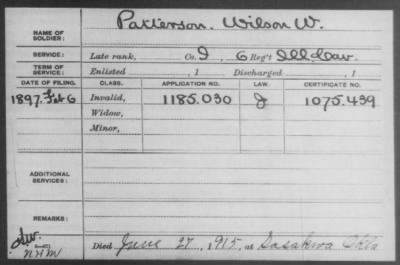 NAME OF SOLDIER: Patterson, Wilson W.
SERVICE: Late rank, Co. I, 6 Reg't Ill. Cav.
TERM OF SERVICE: Enlisted , 1 Discharged , 1
DATE OF FILING. CLASS. APPLICATION NO. LAW. CERTIFICATE NO.
1897. Feb 6 Invalid, 1185.030 J 1075.439
Widow,
Minor,
ADDITIONAL SERVICES:
REMARKS:
NHM
Died June 27, 1915, at Sasakwa Okla